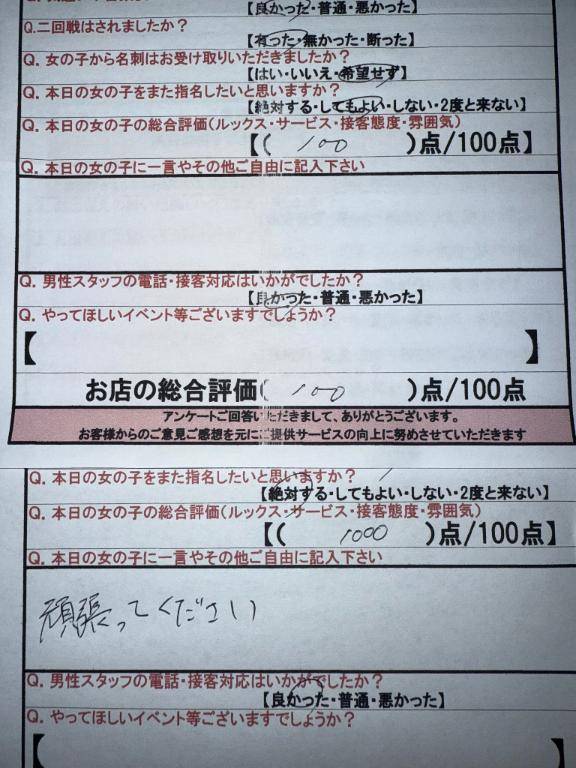 【良かった・普通・悪かった】
Q.二回戦はされましたか？
【有った・無かった・断った】
Q. 女の子から名刺はお受け取りいただきましたか？
【はい・いいえ・希望せず】
Q. 本日の女の子をまた指名したいと思いますか？
【絶対する・してもよい・しない・2度と来ない】
Q. 本日の女の子の総合評価(ルックス・サービス・接客態度・雰囲気)
【( 100 )点/100点】
Q. 本日の女の子に一言やその他ご自由に記入下さい
Q. 男性スタッフの電話・接客対応はいかがでしたか？
【良かった・普通・悪かった】
Q. やってほしいイベント等ございますでしょうか？
【 】
お店の総合評価( 100 )点/100点
アンケートご回答いただきまして、ありがとうございます。
お客様からのご意見ご感想を元にご提供サービスの向上に努めさせていただきます
Q. 本日の女の子をまた指名したいと思いますか？
【絶対する・してもよい・しない・2度と来ない】
Q. 本日の女の子の総合評価(ルックス・サービス・接客態度・雰囲気)
【( 1000 )点/100点】
Q. 本日の女の子に一言やその他ご自由に記入下さい
頑張ってください
Q. 男性スタッフの電話・接客対応はいかがでしたか？
【良かった・普通・悪かった】
Q. やってほしいイベント等ございますでしょうか？
【 】